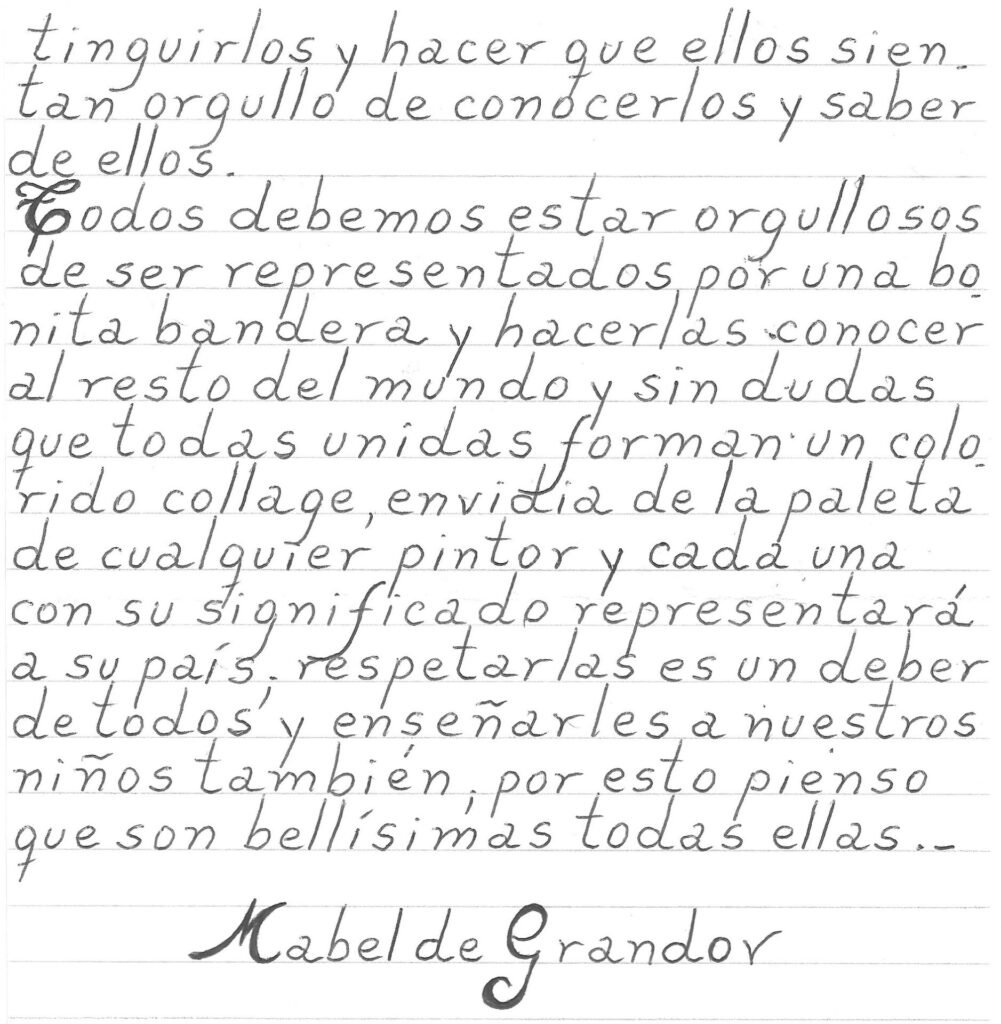 tinguirlos y hacer que ellos sien-
tan orgullo de conocerlos y saber
de ellos.
Todos debemos estar orgullosos
de ser representados por una bo-
nita bandera y hacerlas conocer
al resto del mundo y sin dudas
que todas unidas forman un colo-
rido collage, envidia de la paleta
de cualquier pintor y cada una
con su significado representará
a su país; respetarlas es un deber
de todos y enseñarles a nuestros
niños también; por esto pienso
que son bellísimas todas ellas.-
Mabel de Grandov